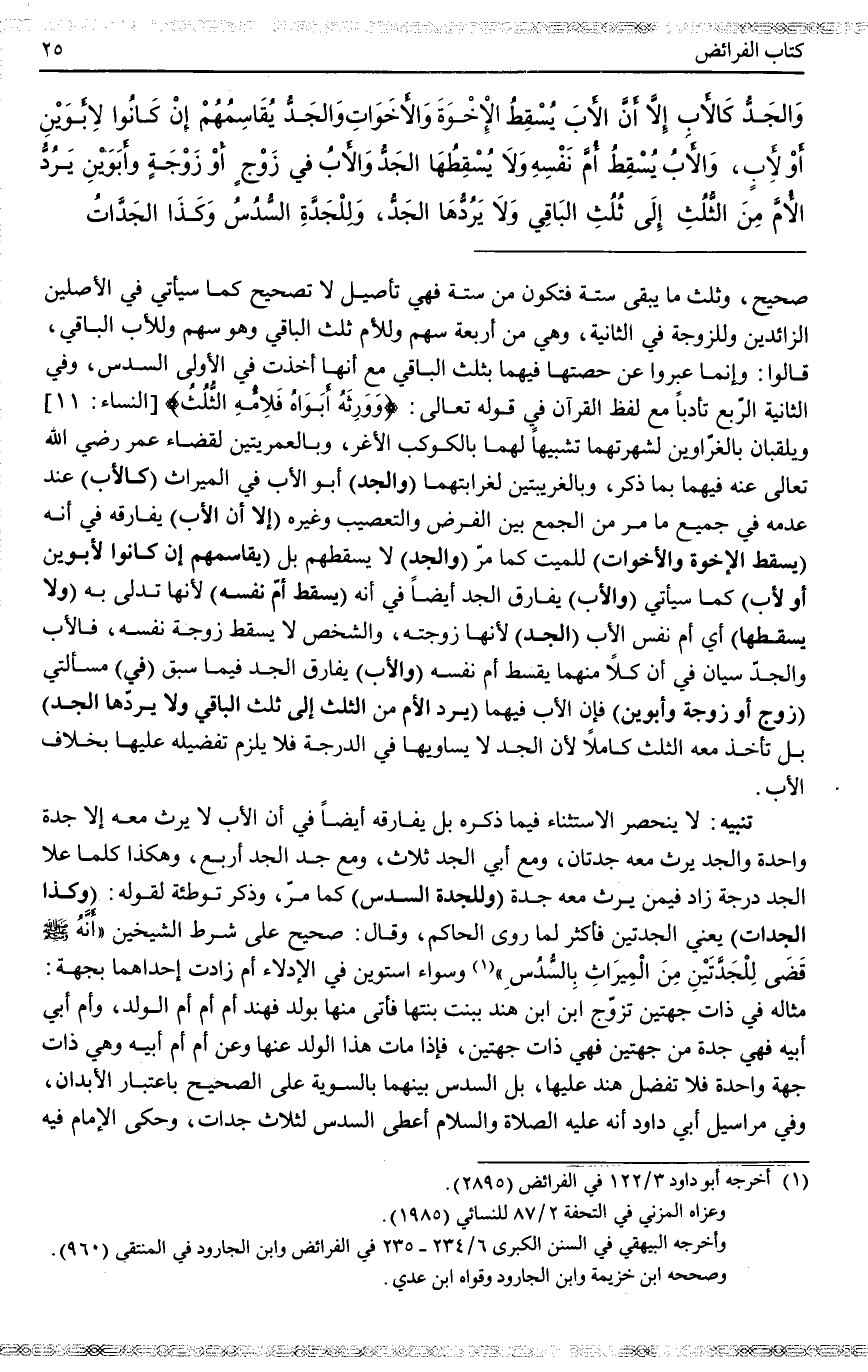 كتاب الفرائض ٢٥
وَالجَدُّ كَالأَبِ إِلاَّ أَنَّ الأَبَ يُسْقِطُ الإِخْوَةَ وَالأَخَوَاتِ وَالجَدُّ يُقَاسِمُهُمْ إِنْ كَانُوا لِأَبَوَيْنِ
أَوْ لأَبٍ، وَالأَبُ يُسْقِطُ أُمَّ نَفْسِهِ وَلاَ يُسْقِطُهَا الجَدُّ وَالأَبُ في زَوْجٍ أَوْ زَوْجَةٍ وأَبَوَيْنِ يَرُدُّ
الأُمَّ مِنَ الثُّلُثِ إِلَى ثُلُثِ البَاقِي وَلاَ يَرُدُّهَا الجَدُّ، وَلِلْجَدَّةِ السُّدُسُ وَكَذَا الجَدَّاتُ
صحيح، وثلث ما يبقى ستة فتكون من ستة فهي تأصيل لا تصحيح كما سيأتي في الأصلين
الزائدين وللزوجة في الثانية، وهي من أربعة سهم وللأم ثلث الباقي وهو سهم وللأب الباقي،
قالوا: وإنما عبروا عن حصتها فيهما بثلث الباقي مع أنها أخذت في الأولى السدس، وفي
الثانية الرّبع تأدباً مع لفظ القرآن في قوله تعالى: ﴿وَوَرِثَهُ أَبَوَاهُ فَلِأُمِّهِ الثُّلُثُ﴾ [النساء: ١١]
ويلقبان بالغرّاوين لشهرتهما تشبيهاً لهما بالكوكب الأغر، وبالعمريتين لقضاء عمر رضي الله
تعالى عنه فيهما بما ذكر، وبالغريبتين لغرابتهما (والجد) أبو الأب في الميراث (كالأب) عند
عدمه في جميع ما مر من الجمع بين الفرض والتعصيب وغيره (إلا أن الأب) يفارقه في أنه
(يسقط الإخوة والأخوات) للميت كما مرّ (والجد) لا يسقطهم بل (يقاسمهم إن كانوا لأبوين
أو لأب) كما سيأتي (والأب) يفارق الجد أيضاً في أنه (يسقط أمّ نفسه) لأنها تدلى به (ولا
يسقطها) أي أم نفس الأب (الجد) لأنها زوجته، والشخص لا يسقط زوجة نفسه، فالأب
والجدّ سيان في أن كلاً منهما يقسط أم نفسه (والأب) يفارق الجد فيما سبق (في) مسألتي
(زوج أو زوجة وأبوين) فإن الأب فيهما (يرد الأم من الثلث إلى ثلث الباقي ولا يردّها الجد)
بل تأخذ معه الثلث كاملاً لأن الجد لا يساويها في الدرجة فلا يلزم تفضيله عليها بخلاف
الأب.
تنبيه: لا ينحصر الاستثناء فيما ذكره بل يفارقه أيضاً في أن الأب لا يرث معه إلا جدة
واحدة والجد يرث معه جدتان، ومع أبي الجد ثلاث، ومع جد الجد أربع، وهكذا كلما علا
الجد درجة زاد فيمن يرث معه جدة (وللجدة السدس) كما مرّ، وذكر توطئة لقوله: (وكذا
الجدات) يعني الجدتين فأكثر لما روى الحاكم، وقال: صحيح على شرط الشيخين «أَنَّهُ ﷺ
قَضَى لِلْجَدَّتَيْنِ مِنَ الْمِيرَاثِ بِالسُّدُسِ»(١) وسواء استوين في الإدلاء أم زادت إحداهما بجهة:
مثاله في ذات جهتين تزوّج ابن ابن هند ببنت بنتها فأتى منها بولد فهند أم أم أم الولد، وأم أبي
أبيه فهي جدة من جهتين فهي ذات جهتين، فإذا مات هذا الولد عنها وعن أم أم أبيه وهي ذات
جهة واحدة فلا تفضل هند عليها، بل السدس بينهما بالسوية على الصحيح باعتبار الأبدان،
وفي مراسيل أبي داود أنه عليه الصلاة والسلام أعطى السدس لثلاث جدات، وحكى الإمام فيه
(١) أخرجه أبو داود ١٢٢/٣ في الفرائض (٢٨٩٥).
وعزاه المزني في التحفة ٨٧/٢ للنسائي (١٩٨٥).
وأخرجه البيهقي في السنن الكبرى ٢٣٤/٦ ـ ٢٣٥ في الفرائض وابن الجارود في المنتقى (٩٦٠).
وصححه ابن خزيمة وابن الجارود وقواه ابن عدي.